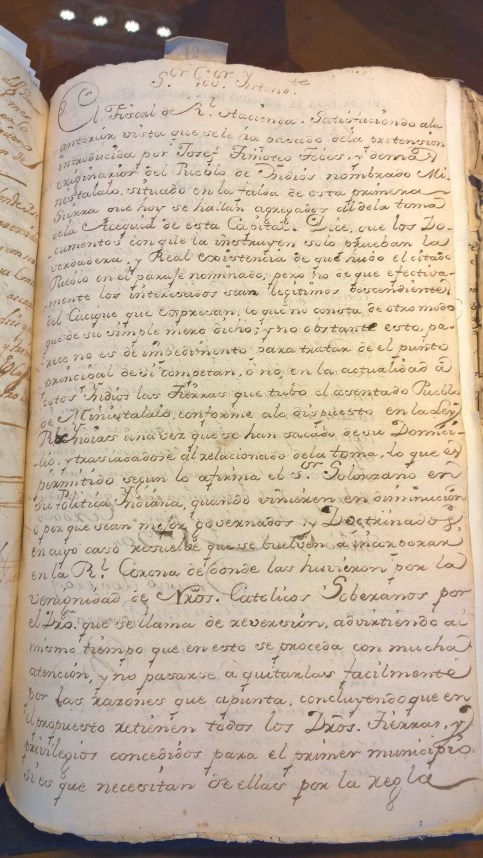 Sor. Gor. y Intend.te
El Fiscal de Rl. Hacienda. Satisfaciendo ala
anterior vista que sele ha pasado dela pretension
introducida por Josef Timoteo y demas
originarios del Pueblo de Indios nombrado Mi-
nistalalo, situado en la falda de esta primera
Sierra que hoy se hallan agregados al dela toma
dela Acequia de esta Capital. Dice, que los Do-
cumentos con que la instruyen solo prueban la
verdadera, y Real existencia de que hubo el citado
Pueblo en el paraje nominado, pero no de que efectiva-
mente los interesados sean legitimos descendientes
del Cacique que expresan, lo que no consta de otro modo
que de su simple mero dicho; y no obstante esto, pa-
rece no es de impedimento para tratar de el punto
principal de si competan, ó no, en la actualidad á
estos Indios las Tierras que tubo el asentado Pueblo
de Ministalalo, conforme alo dispuesto en la Ley
una vez que se han sacado de su Domici-
lio, y trasladadose al relacionado dela toma, lo que es
permitido segun lo afirma el Sor. Solorzano en
su Politica Indiana, quando vinieren en diminucion
ó por que sean mejor governados, y Doctrinados,
en cuyo caso resuelve que se buelven a incorporar
en la Rl. Corona de donde las huvieron por la
venignidad de Nros. Catolicos Soberanos por
el Dro. que se llama de reversion, advirtiendo al
mismo tiempo que en esto se proceda con mucha
atencion, y no pasarse á quitarlas facilmente
por las razones que apunta, concluyendo que en
el propuesto retienen todos los Dros. Tierras, y
privilegios concedidos para el primer municipio
si es que necesitan de ellas por la regla